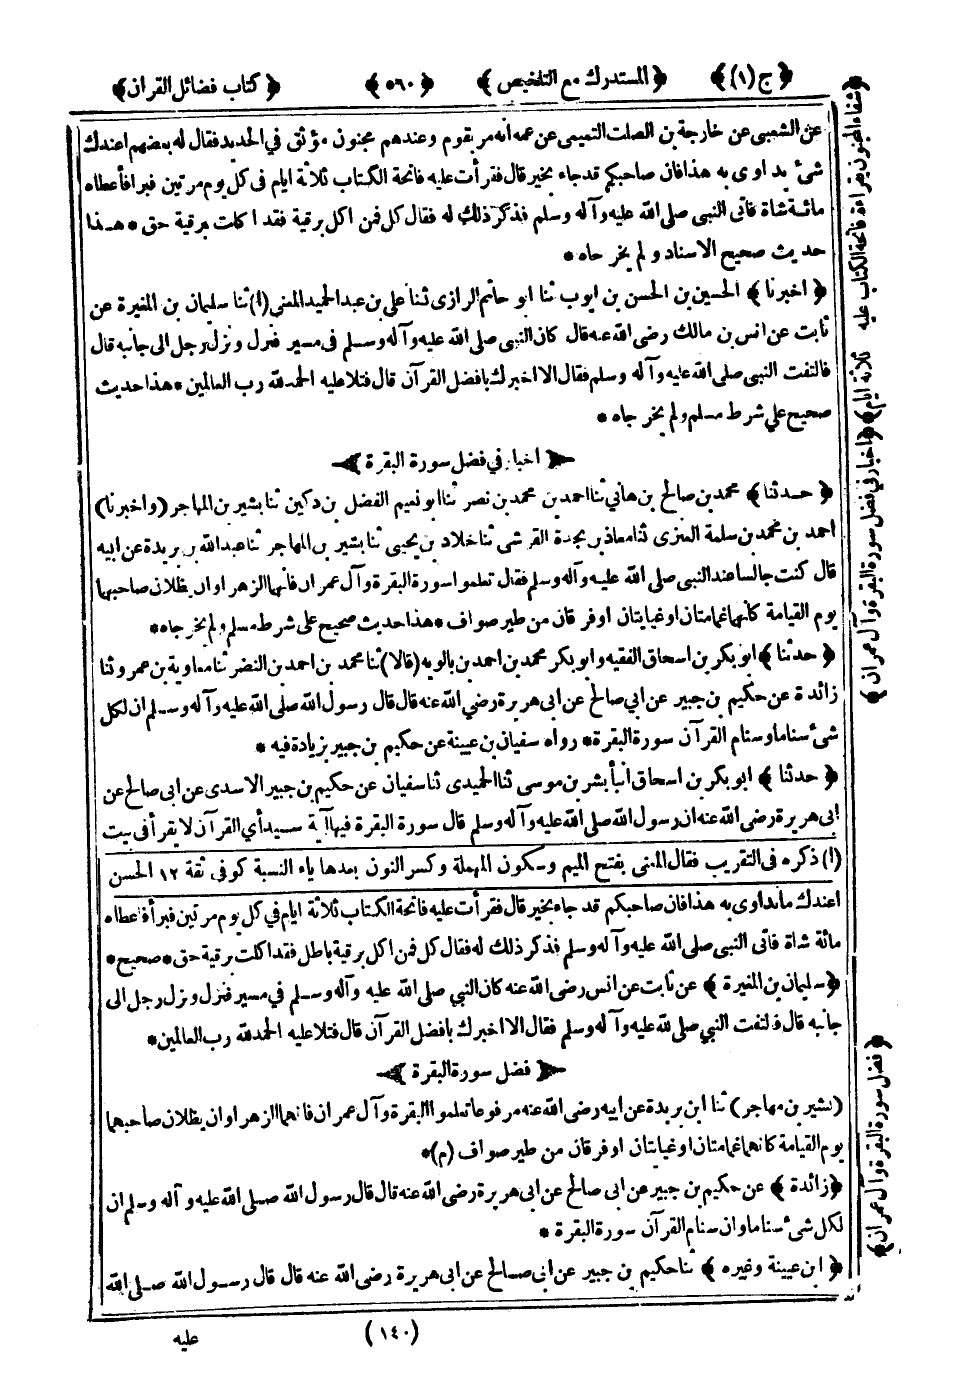 ﴿ ج (١) ﴾ ﴿ المستدرك مع التلخيص ﴾ ﴿ ٥٦٠ ﴾ ﴿ كتاب فضائل القرآن ﴾
عن الشعبى عن خارجة بن الصلت التميمى عن عمه انه مر بقوم وعندهم مجنون مؤثق في الحديد فقال له بعضهم اعندك
شئ يداوى به هذا فان صاحبكم قد جاء بخير قال فقرأت عليه فاتحة الكتاب ثلاثة ايام فى كل يوم مرتين فبرأ فأعطاه
مائة شاة فاتى النبى صلى الله عليه وآله وسلم فذكر ذلك له فقال كل فمن اكل برقية فقد اكلت برقية حق * هذا
حديث صحيح الاسناد ولم يخرجاه *
﴿ اخبرنا ﴾ الحسين بن الحسن بن ايوب ثنا ابو حاتم الرازى ثنا على بن عبد الحميد المعنى (١) ثنا سليمان بن المغيرة عن
ثابت عن انس بن مالك رضى الله عنه قال كان النبى صلى الله عليه وآله وسلم فى مسير فنزل ونزل رجل الى جانبه قال
فالتفت النبى صلى الله عليه وآله وسلم فقال الا اخبرك بافضل القرآن قال فتلا عليه الحمد لله رب العالمين * هذا حديث
صحيح على شرط مسلم ولم يخرجاه *
اخبار في فضل سورة البقرة
﴿ حدثنا ﴾ محمد بن صالح بن هاني ثنا احمد بن محمد بن نصر ثنا ابو نعيم الفضل بن دكين ثنا بشير بن المهاجر (واخبرنا)
احمد بن محمد بن سلمة العنزى ثنا معاذ بن نجدة القرشى ثنا خلاد بن يحيى ثنا بشير بن المهاجر ثنا عبد الله بن بريدة عن ابيه
قال كنت جالسا عند النبى صلى الله عليه وآله وسلم فقال تعلموا سورة البقرة وآل عمران فانهما الزهراوان يظلان صاحبهما
يوم القيامة كأنهما غمامتان او غيايتان او فرقان من طير صواف * هذا حديث صحيح على شرط مسلم ولم يخرجاه *
﴿ حدثنا ﴾ ابو بكر بن اسحاق الفقيه وابو بكر محمد بن احمد بن بالويه (قالا) ثنا محمد بن احمد بن النضر ثنا معاوية بن عمرو ثنا
زائدة عن حكيم بن جبير عن ابي صالح عن ابى هريرة رضي الله عنه قال قال رسول الله صلى الله عليه وآله وسلم ان لكل
شئ سناما وسنام القرآن سورة البقرة * رواه سفيان بن عيينة عن حكيم بن جبير بزيادة فيه *
﴿ حدثنا ﴾ ابو بكر بن اسحاق انبأ بشر بن موسى ثنا الحميدى ثنا سفيان عن حكيم بن جبير الاسدى عن ابى صالح عن
ابى هريرة رضى الله عنه ان رسول الله صلى الله عليه وآله وسلم قال سورة البقرة فيها آية سيد أي القرآن لا يقرأ فى بيت
(١) ذكره فى التقريب فقال المعنى بفتح الميم وسكون المهملة وكسر النون بعدها ياء النسبة كوفى ثقة ١٢ الحسن
اعندك ما يداوى به هذا فان صاحبكم قد جاء بخير قال فقرأت عليه فاتحة الكتاب ثلاثة ايام في كل يوم مرتين فبرأ فأعطاه
مائة شاة فاتى النبى صلى الله عليه وآله وسلم فذكر ذلك له فقال كل فمن اكل برقية باطل فقد اكلت برقية حق * صحيح *
﴿ سليمان بن المغيرة ﴾ عن ثابت عن انس رضى الله عنه كان النبي صلى الله عليه وآله وسلم في مسير فنزل ونزل رجل الى
جانبه قال فالتفت النبي صلى الله عليه وآله وسلم فقال الا اخبرك بافضل القرآن قال فتلا عليه الحمد لله رب العالمين *
فضل سورة البقرة
(بشير بن مهاجر) ثنا ابن بريدة عن ابيه رضى الله عنه مرفوعا تعلموا البقرة وآل عمران فانهما الزهراوان يظلان صاحبهما
يوم القيامة كانهما غمامتان او غيايتان او فرقان من طير صواف (م) *
﴿ زائدة ﴾ عن حكيم بن جبير عن ابى صالح عن ابى هريرة رضى الله عنه قال قال رسول الله صلى الله عليه وآله وسلم ان
لكل شئ سناما وان سنام القرآن سورة البقرة *
﴿ ابن عيينة وغيره ﴾ ثنا حكيم بن جبير عن ابى صالح عن ابى هريرة رضى الله عنه قال قال رسول الله صلى الله
(١٤٠)
عليه
﴿ شفاء المجنون بقراءة فاتحة الكتاب عليه ثلاثة ايام ﴾
﴿ اخبار في فضل سورة البقرة وآل عمران ﴾
﴿ فضل سورة البقرة وآل عمران ﴾